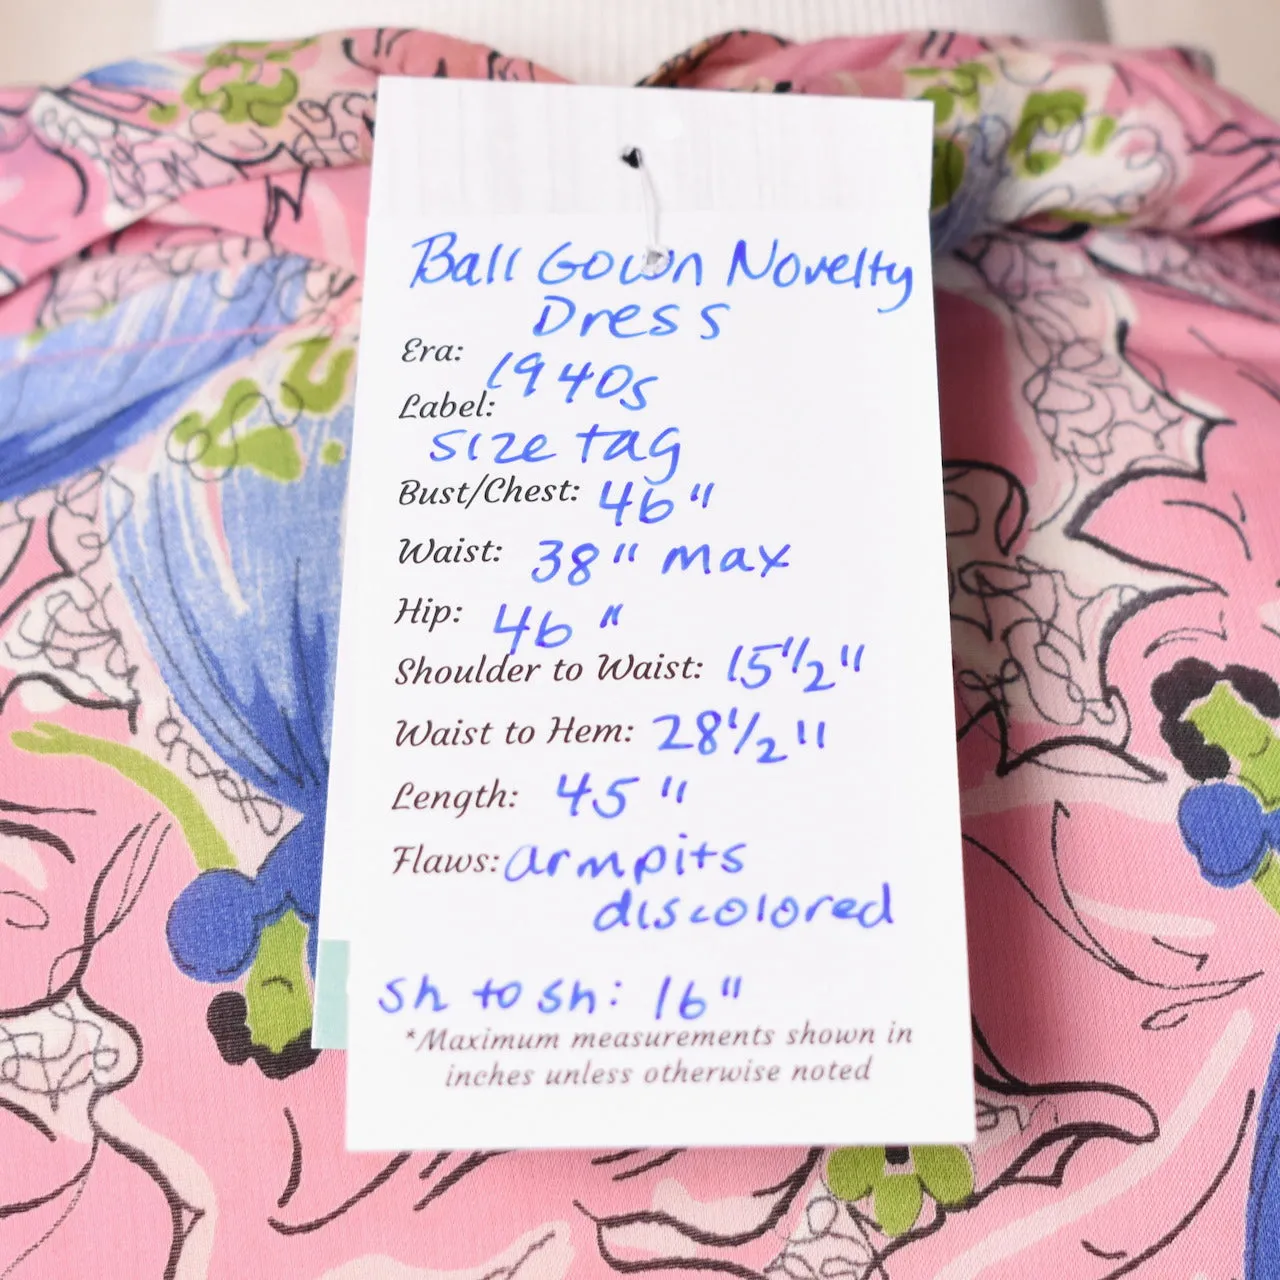 Ball Gown Novelty
Dress
Era: 1940s
Label:
size tag
Bust/Chest: 46"
Waist: 38" max
Hip: 46"
Shoulder to Waist: 15 1/2"
Waist to Hem: 28 1/2"
Length: 45"
Flaws: armpits
discolored
sh to sh: 16"
*Maximum measurements shown in
inches unless otherwise noted